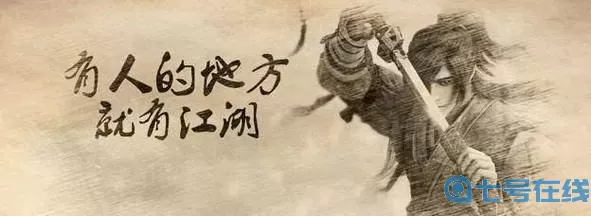 有人的地方
就有江湖
七号在线